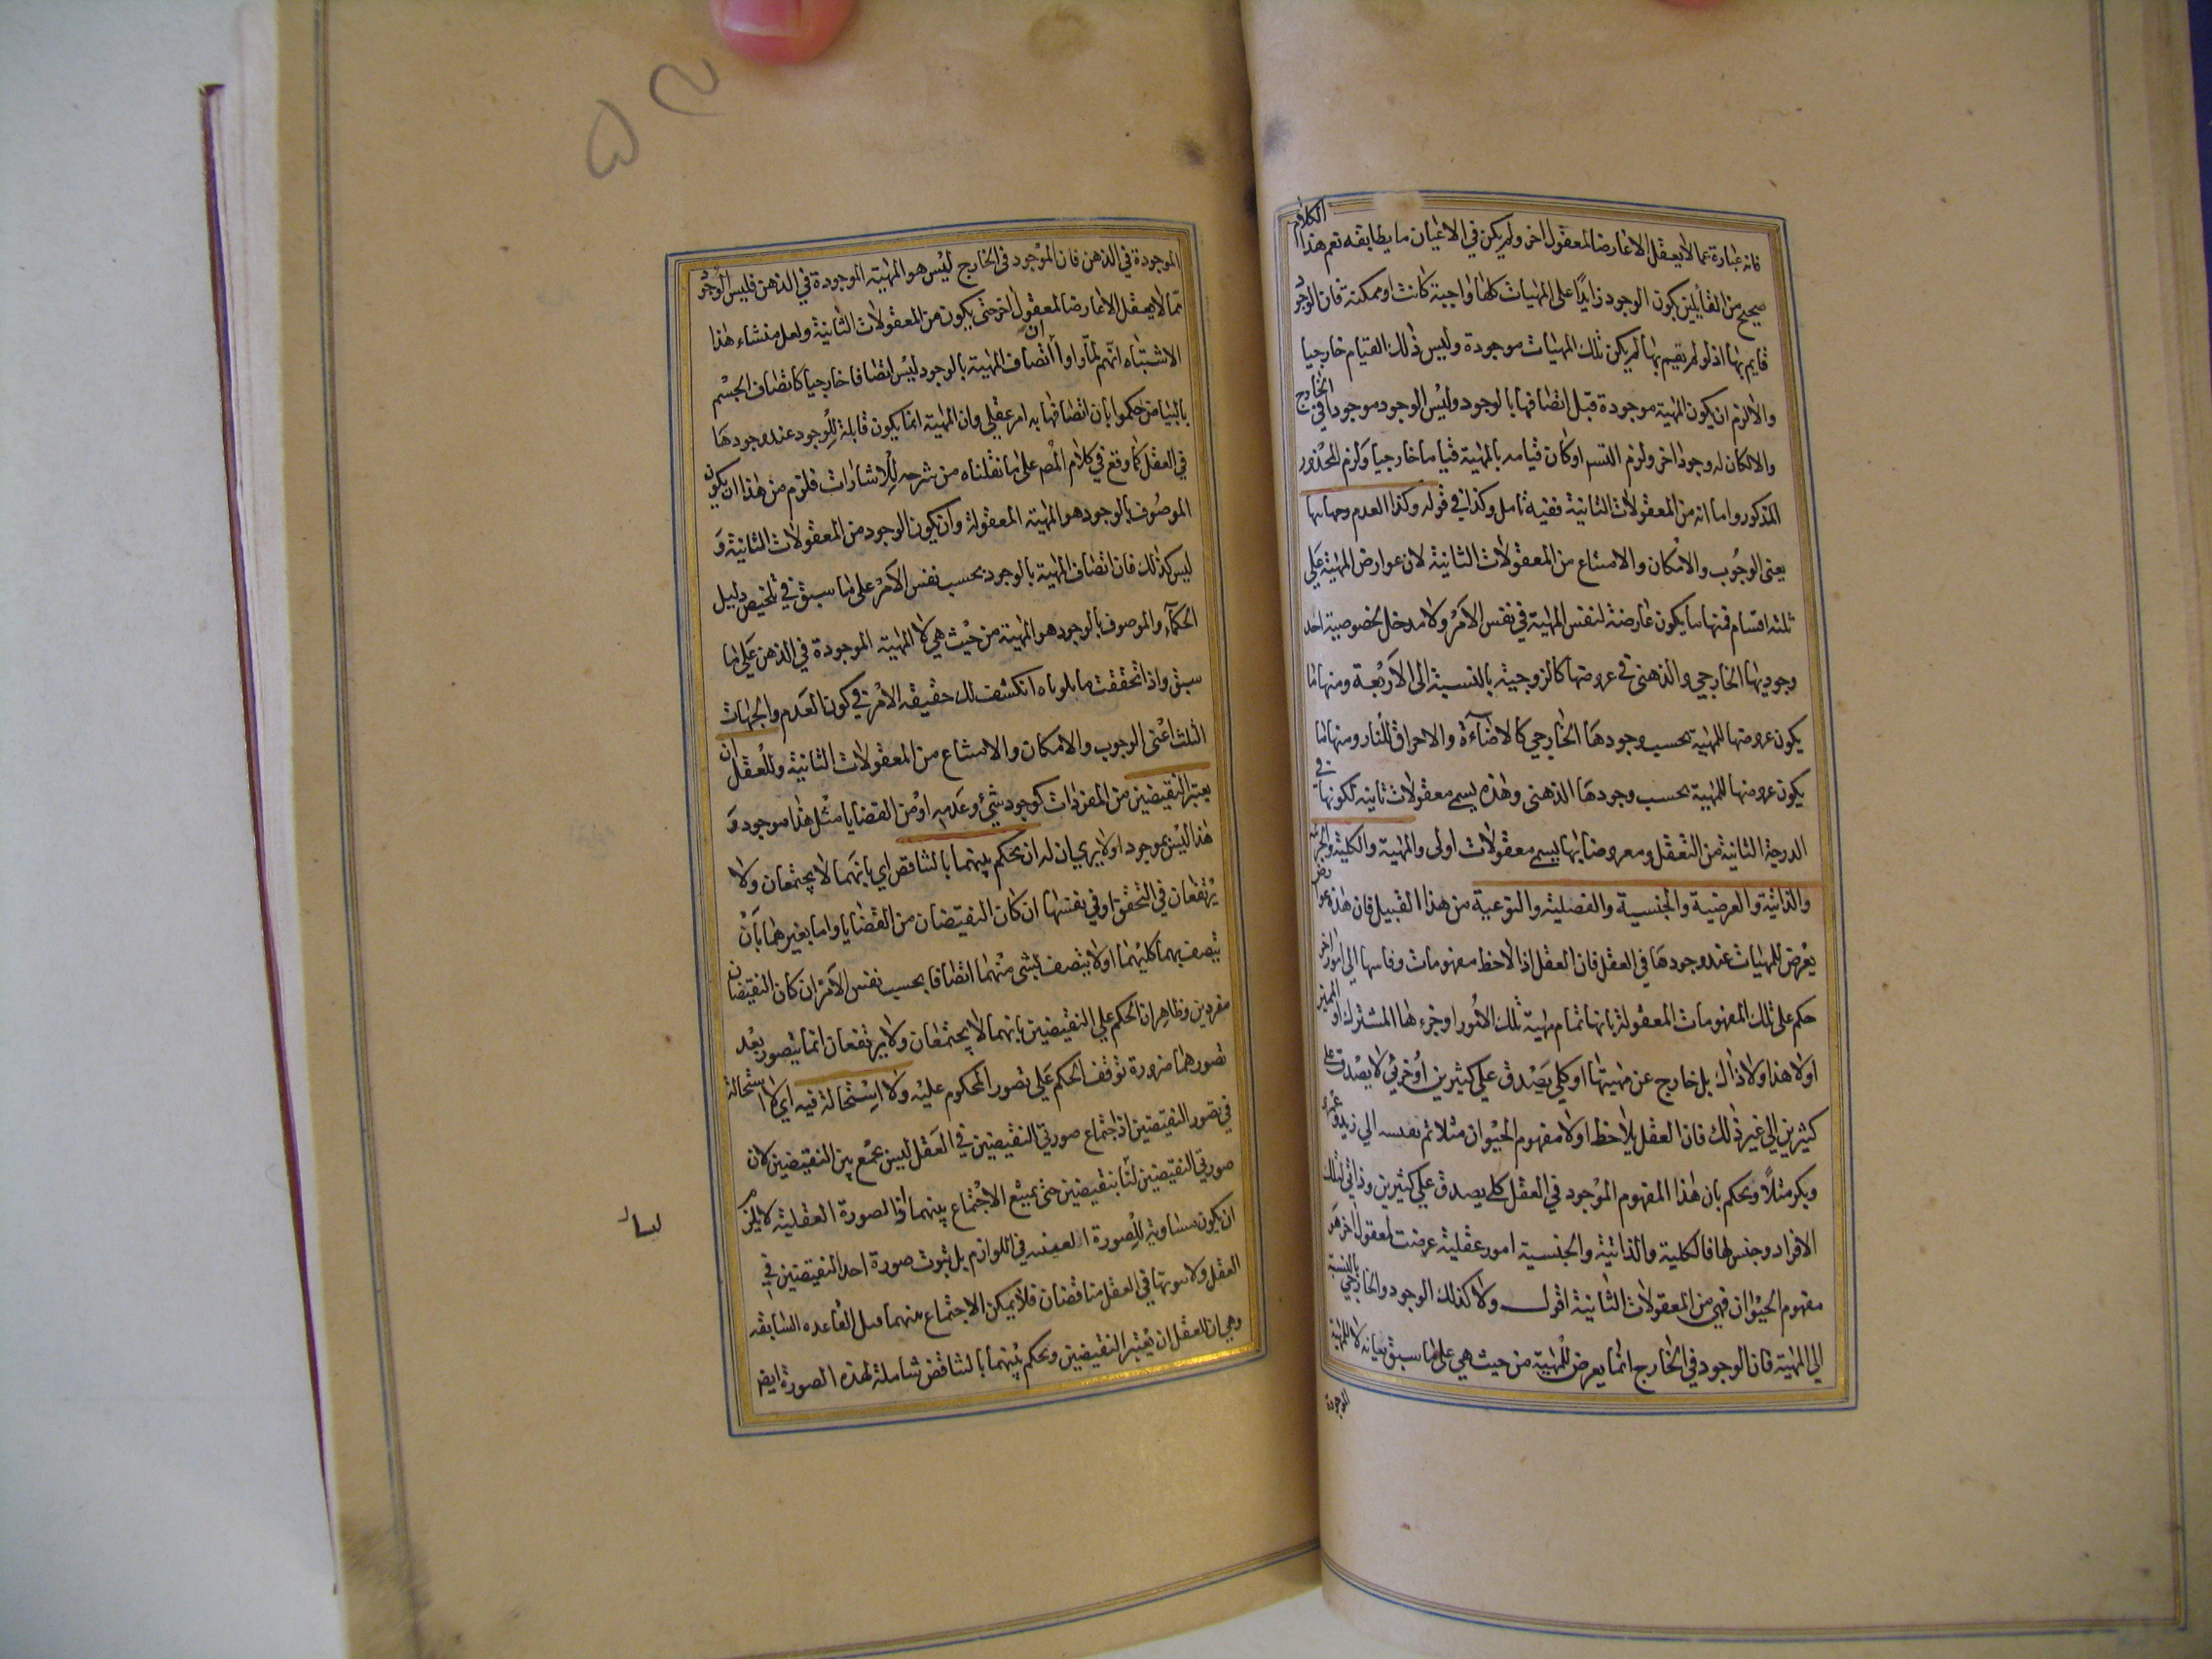 فانه عبارة عما لا يعقل الا عارضا لمعقول اخر ولم يكن في الاعيان ما يطابقه نعم هذا الكلام
صحيح من القائلين بكون الوجود زايدا على المهيات كلها واجبة كانت او ممكنة فان الوجود
قايم بها اذ لو لم يقيم بها لم يكن تلك المهيات موجودة وليس ذلك القيام خارجيا
والا لزم ان يكون المهية موجودة قبل اتصافها بالوجود وليس الوجود موجودا في الخارج
والا لكان له وجود اخر ولزم التسم او كان قيامه بالمهية قياما خارجيا ولزم المحذور
المذكور واما انه من المعقولات الثانية ففيه تامل وكذا في قوله وكذا العدم وجهاتها
يعني الوجوب والامكان والامتناع من المعقولات الثانية لان عوارض المهية على
ثلثه اقسام فمنها ما يكون عارضة لنفس المهية في نفس الامر ولا مدخل لخصوصية احد
وجوديها الخارجي والذهني في عروضها كالزوجية بالنسبة الى الاربعة ومنها ما
يكون عروضها للمهية بحسب وجودها الخارجي كالاضاءة والاحراق للنار ومنها ما
يكون عروضها للمهية بحسب وجودها الذهني وهذه يسمى معقولات ثانية لكونها في
الدرجة الثانية من التعقل ومعروضاتها يسمى معقولات اولى والمهية والكلية والجزئية
والذاتية والعرضية والجنسية والفصلية والنوعية من هذا القبيل فان هذه عوارض
يعرض للمهيات عند وجودها في العقل فان العقل اذا لاحظ مفهومات وقاسها الى امور اخر
حكم على تلك المفهومات المعقولة بانها تمام مهية تلك الامور او جزء لها المشترك او المميز
او لا هذا ولا ذاك بل خارج عن مهيتها او كلي يصدق علي كثيرين او جزئي لا يصدق على
كثيرين الي غير ذلك فان العقل يلاحظ اولا مفهوم الحيوان مثلا ثم يقيسه الي زيد وعمرو
وبكر مثلا ويحكم بان هذا المفهوم الموجود في العقل كلي يصدق علي كثيرين وذاتي لتلك
الافراد وجنس لها فالكلية والذاتية والجنسية امور عقلية عرضت لمعقول اخر هو
مفهوم الحيوان فهي من المعقولات الثانية اقول ولا كذلك الوجود والخارجي بالنسبة
الي المهية فان الوجود في الخارج انما يعرض للمهية من حيث هي على ما سبق بيانه لا للمهية
الموجودة
الموجودة في الذهن فان الموجود في الخارج ليس هو المهية الموجودة في الذهن فليس الوجود
مما لا يعقل الا عارضا لمعقول اخر حتى يكون من المعقولات الثانية ولعل منشاء هذا
الاشتباه انهم لما راوا ان اتصاف المهية بالوجود ليس اتصافا خارجيا كاتصاف الجسم
بالبياض حكموا بان اتصافها به امر عقلي وان المهية انما يكون قابلة للوجود عند وجودها
في العقل كما وقع في كلام المص على ما نقلناه من شرحه للاشارات فلزم من هذا ان يكون
الموصوف بالوجود هو المهية المعقولة وان يكون الوجود من المعقولات الثانية و
ليس كذلك فان اتصاف المهية بالوجود بحسب نفس الامر على ما سبق في تلخيص دليل
الحكماء والموصوف بالوجود هو المهية من حيث هي لا المهية الموجودة في الذهن على ما
سبق واذا تحققت ما تلوناه انكشف لك حقيقة الامر في كون العدم والجهات
الثلث اعني الوجوب والامكان والامتناع من المعقولات الثانية وللعقل ان
يعتبر النقيضين من المفردات كوجود شيء وعدمه او من القضايا مثل هذا موجود و
هذا ليس بموجود اولا يري ان له ان يحكم بينهما بالتناقض اي بانهما لا يجتمعان ولا
يرتفعان في التحقق او في نفسها ان كان النقيضان من القضايا واما بغيرهما بان
يتصف بهما كليهما او لا يتصف بشي منهما اتصافا بحسب نفس الامر ان كان النقيضان
مفردين وظاهر ان الحكم علي النقيضين بانهما لا يجتمعان ولا يرتفعان انما يتصور بعد
تصورهما ضرورة توقف الحكم علي تصور المحكوم عليه ولا استحالة فيه اي لا استحالة
في تصور النقيضين اذ اجتماع صورتي النقيضين في العقل ليس بجمع بين النقيضين لان
صورتي النقيضين ليتا بنقيضين حتى يمتنع الاجتماع بينهما اذ الصورة العقلية لا يلزم
ان يكون مساوية للصورة العينيه في اللوازم بل ثبوت صورة احد النقيضين في
العقل ولا ثبوتها في العقل متناقضان فلا يمكن الاجتماع بينهما القاعده السابقه
وهي ان للعقل ان يعتبر النقيضين ويحكم بينهما بالتناقض شاملة لهذه الصورة ايض